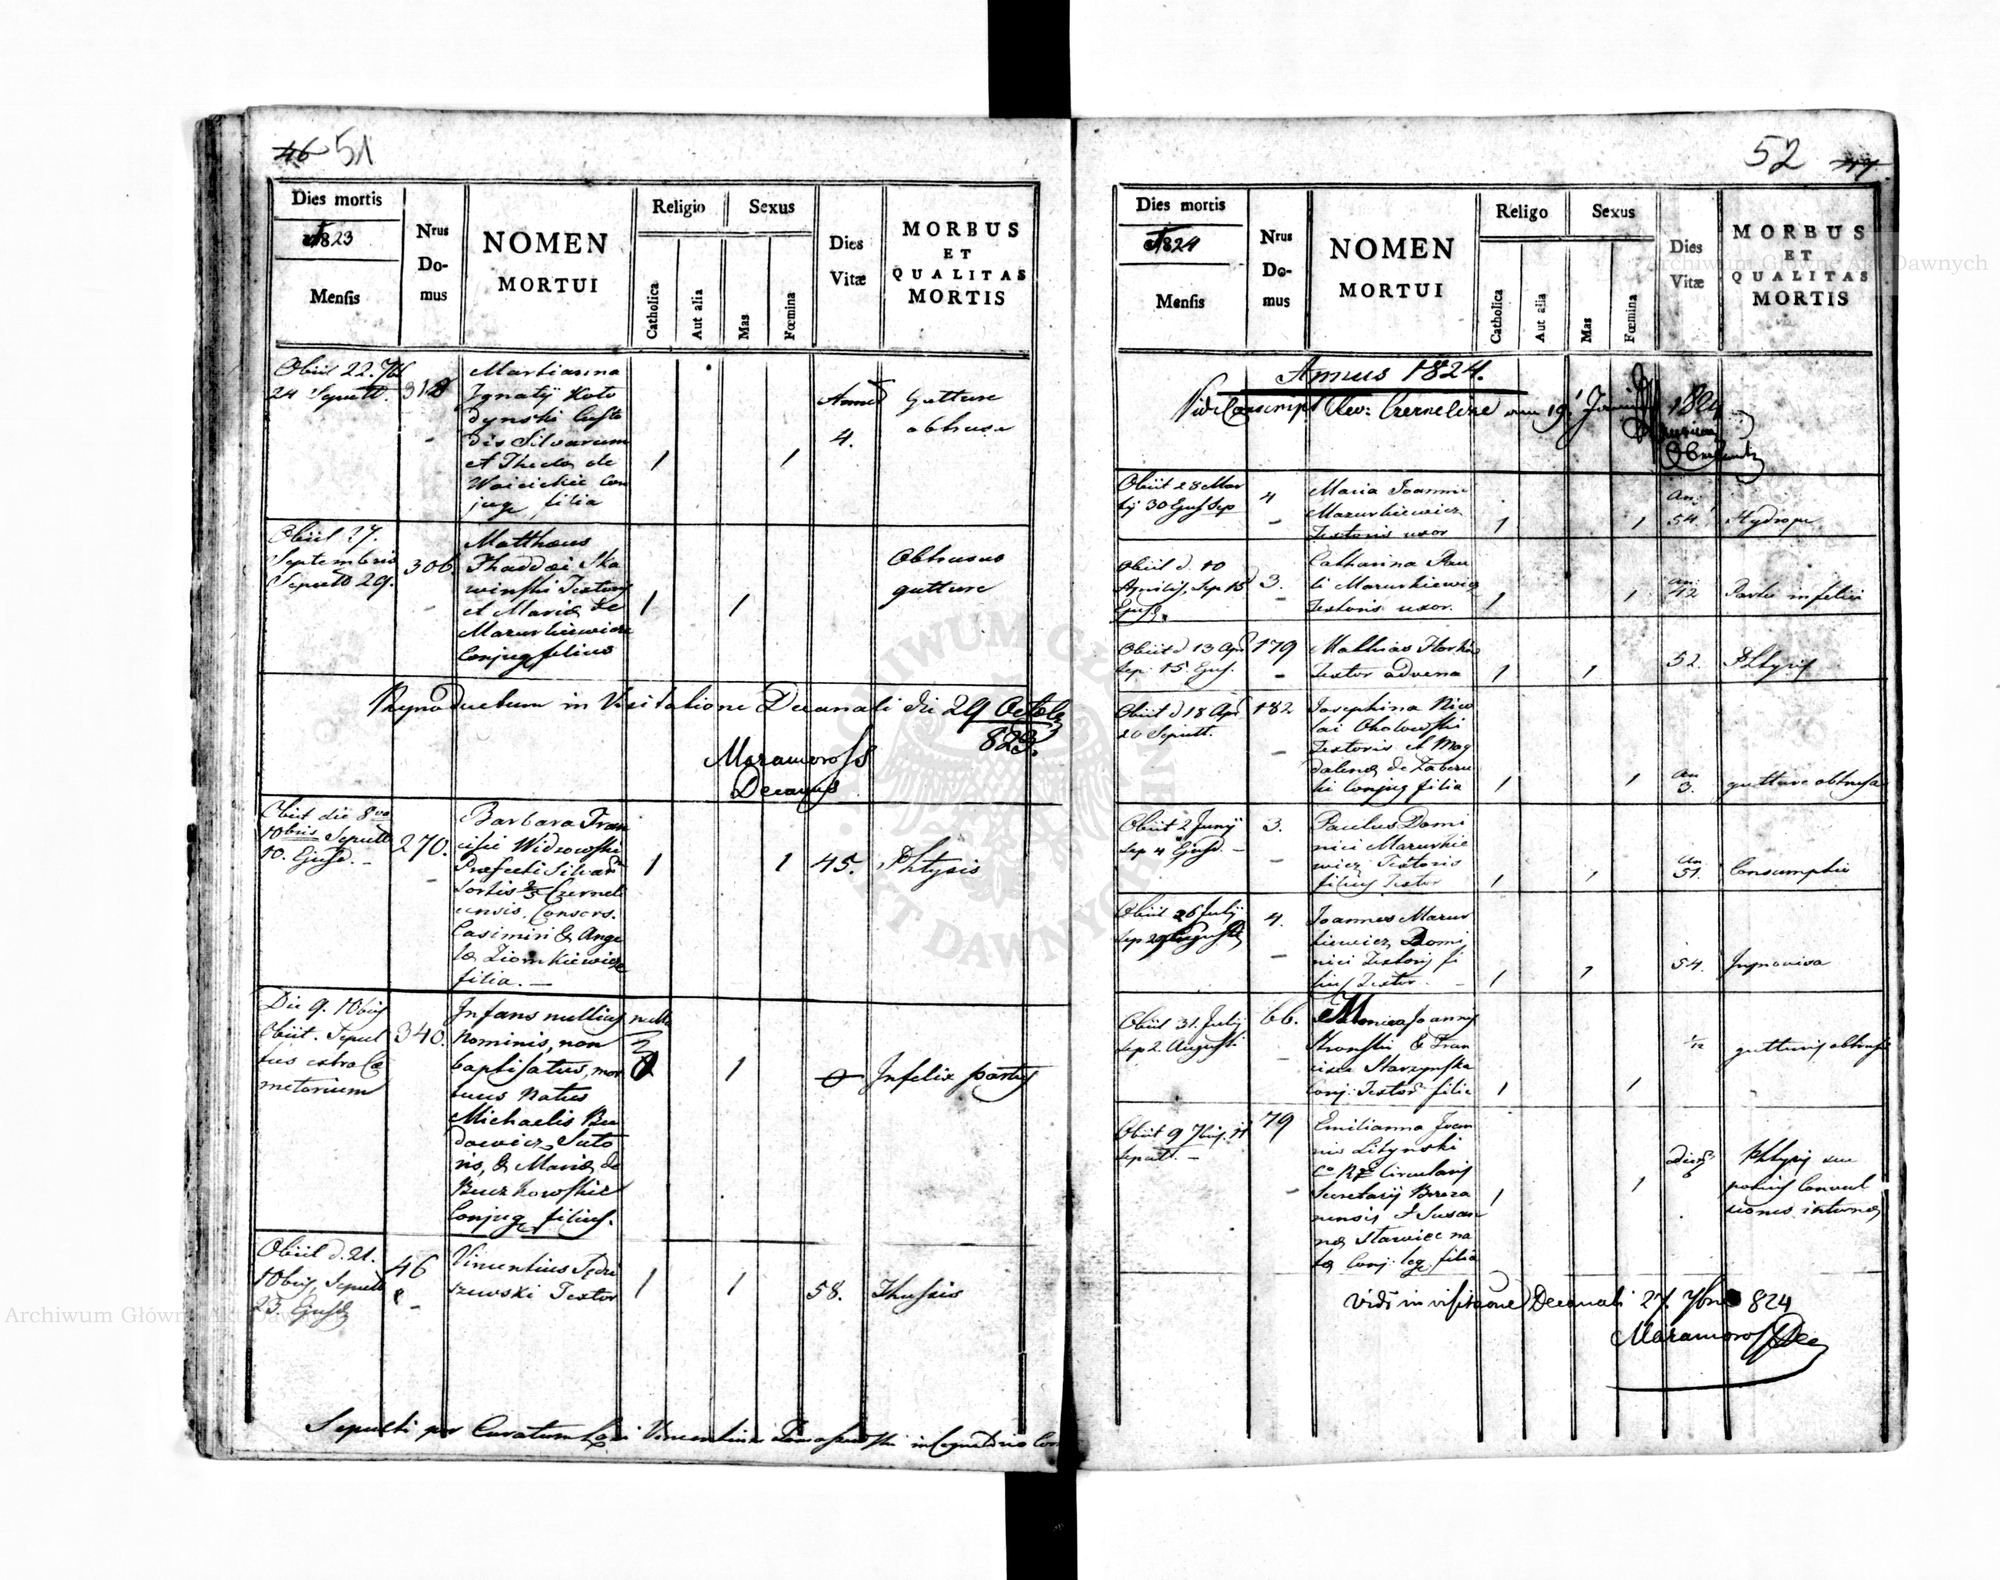 46 51
Dies mortis
1823
Mensis
Nrus
Do-
mus
NOMEN
MORTUI
Religio
Catholica
Aut alia
Sexus
Mas
Fœmina
Dies
Vitæ
MORBUS
ET
QUALITAS
MORTIS
Obiit 22. 7bris
24 Sepult.
318
Martianna
Ignatij Koto
dynski Custo
dis Silvarum
et Theclæ de
Woicickie Con
jugu filia
1
1
Annos
4.
Gutture
obhuso
Obiit 27.
Septembris
Sepult 29.
306.
Matthæus
Thaddæi Ska
winski Textoris
et Mariæ de
Mazurkiewicze
Conjug filius
1
1
Obhusus
gutture
Reproductum in Visitatione Decanali die 29 Octobr
823.
Maramoross
Decanus
Obiit die 8va
10bris Sepult
10. Ejusd. –
270.
Barbara Fran
cisci Widzowski
Præfecti Silvar
Sortis Czernel
Consors.
Casimiri & Ange
læ Ziomkiewicze
filia. –
1
1
45.
Phtysis
Die 9. 10bris
Obiit. Sepul
tus extra Cæ
meterium
340.
Infans nullius
Nominis, non
baptisatus, mor
tuus Natus
Michaelis Bu
dowicz Suto
ris, & Mariæ de
Buczkowskie
Conjug filius.
nulla
1
0
Infelix partus
Obiit d. 21.
10bris Sepult
23. Ejusd
46
Vincentius
szewski Textor
1
1
58.
Thussis
Sepulti per Curatum Vincentium in
52 47.
Dies mortis
1824
Mensis
Nrus
Do-
mus
NOMEN
MORTUI
Religo
Catholica
Aut alia
Sexus
Mas
Fœmina
Dies
Vitæ
MORBUS
ET
QUALITAS
MORTIS
Annus 1824.
Vidi Conscript Rev: Czernelcze 19 1824
Obiit 28 Mar
tij 30 Ejus Sep
4
Maria Joannis
Mazurkiewicz
Textoris uxor
1
1
an:
54.
Hydrope
Obiit d. 10
Aprilis, Sep 15
Ejusd.
3.
Catharina Pau
li Mazurkiewicz
Textoris uxor.
1
1
an:
42
Partu infelici
Obiit d 13 Apr
Sep. 15. Ejus.
179
Mathias
Textor advena
1
1
52.
Phtysis
Obiit d 18 Apr
20 Sepult.
182
Josephina Nico
lai Chodowski
Textoris et Mag
dalenæ de
ki Conjug filia
1
1
an
3.
gutture obhuso
Obiit 2 Junij
Sep 4 Ejusd. –
3.
Paulus Domi
nici Mazurkie
wicz Textoris
filius Textor
1
1
an
51.
Consumptio
Obiit 26 Julij
Sep 29
4.
Joannes Mazur
kiewicz Domi
nici Textoris fi
lius Textor. –
1
1
54.
Improvisa
Obiit 31. Julij
Sep 2. Augusti
66.
Monica Joannis
Stronski & Fran
ciscæ Starzynska
Conj: Textor filia
1
1
gutturis obhuso
Obiit 9 7bris 11
Sepult. –
79
Emilianna Joan
nis Litynski
Circularis
Secretarij Bereza
nensis & Susan
næ Stawiec na
tæ Conj: leg: filia
1
1
Dies
Phtysis seu
potius Convul
siones internæ
Vidi in visitatione Decanali 27. 7bris 824
Maramoross Dec
ARCHIWUM GŁÓWNE AKT DAWNYCH
Archiwum Główne Akt Dawnych
Archiwum Główne Akt Dawnych